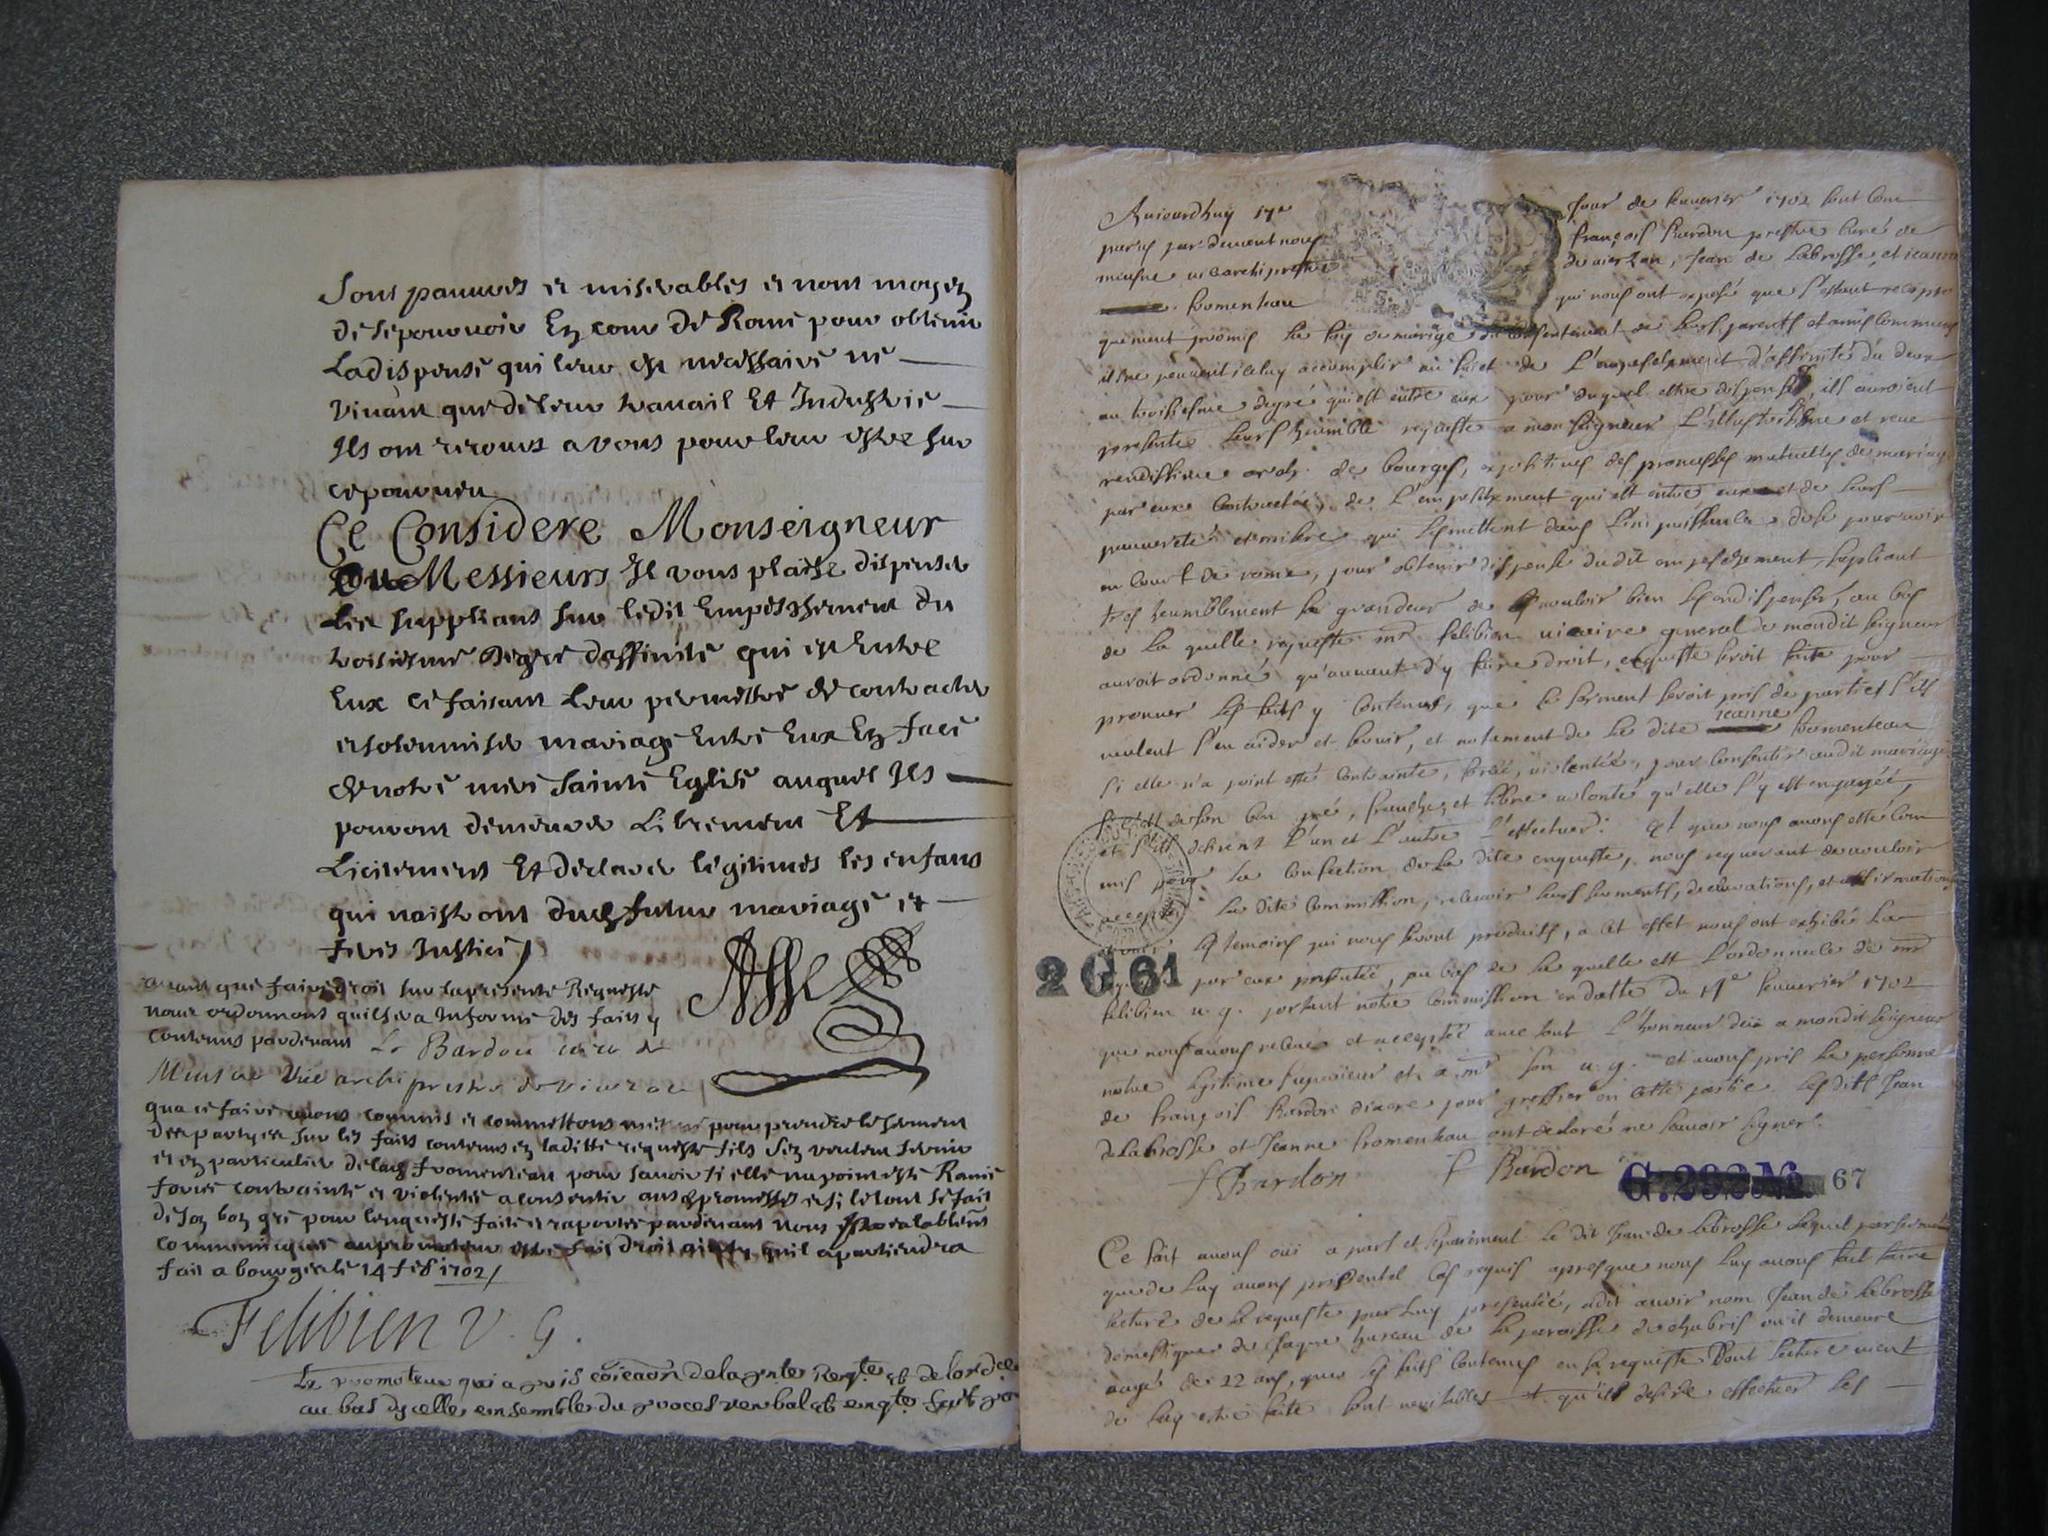 Sont pauures et miserables et nont moyen
de se pouruoir En cour de Rome pour obtenir
La dispense qui leur est necessaire ne
viuant que de leur trauail Et Industrie
Ils ont recours a vous pour leur estre sur
ce pourueu
Ce Consideré Monseigneur
ou Messieurs Il vous plaise dispenser
les supplians sur ledit Empeschement du
troisieme degré daffinité qui est Entre
Eux ce faisant Leur permettre de contracter
et solemniser mariage Entre Eux En face
de notre mere Sainte Eglise auquel Ils
pourront demeurer Librement Et
Licitement Et declarer legitimes les enfans
qui naistront dud futur mariage et
ferés Justice
auant que faire droit sur la presente Requeste
nous ordonnons quil sera Informé des faits y
contenus pardeuant Le Sr Bardon curé de
Meusne Vice archiprestre de Vierzon
qua ce faire auons commis et commettons pour prendre le serment
des partyes sur les faits contenus en laditte requeste sils sen veulent seruir
et en particulier de lad fromenteau pour sauoir si elle na point esté Rauie
forcée contrainte et violentée a consentir aux promesses et si le tout se fait
de son bon gré pour lenqueste faite et raportée pardeuant nous prealablemt
communiquée au promoteur estre fait droit ainsy quil apartiendra
fait a bourges le 14 feb 1702
Felibien V. G.
Le promoteur qui a pris coîcaôn de la pnte Reqte et de lord
au bas dycelle ensemble du proces verbal et enqte fait
Auiourdhuy 17e jour de feuurier 1702 sont com
parus par deuant nous françois Bardon prestre curé de
meusne uicearchiprestre de uierzon, Jean de Labrosse, et ieanne
fromenteau qui nous ont exposé que s'estant recipro
quement promis la foy de mariage du consentement de leurs parents et amis communs
ils ne peuuent iceluy accomplir au suiet de L'empeschement d'affinité du deux
au troisiesme degré qui est entre eux pour duquel estre dispensés, ils auroient
presenté leurs humble requeste a monseigneur L'illustrissime et reue
rendissime arch. de bourges, expositiues des promesses mutuelles de mariage
par eux Contractées, de L'empeschement qui est entre eux et de leurs
pauureté et misere qui les mettent dans l'impuissance de se pouruoir
en Court de rome, pour obtenir dispense dudit empeschement, supliant
tres heumblement sa grandeur de uouloir bien les en dispenser, au bas
de la quelle requeste mr felibien uicaire general de mondit seigneur
auroit ordonné qu'auant d'y faire droit, enqueste seroit faite pour
prouuer les faits y Contenus, que le serment seroit pris de parties s'ils
ueulent s'en aider et seruir, et notament de la dite jeanne fromenteau
si elle n'a point esté Contrainte, forcée, uiolentée, pour Consentir audit mariage
si c'est de son bon gré, franche, et libre uolonté qu'elle s'y est engagée,
et s'ils desirent L'un et L'autre L'effectuer. Et que nous auons esté Com
mis pour la Confection de la dite enqueste, nous requerant de uouloir
accepter la dite Commission, receuoir leurs serments, declarations, et affirmations
et temoins qui nous seront produits, a cet effet nous ont exhibé la
par eux presentée, au bas de la quelle est L'ordonnance de mr
felibien u. g. portant notre Commission en datte du 14e feuurier 1702
que nous auons receue et acceptée auec tout L'honneur deu a mondit seigneur
notre legitime superieur et a mr son u. g. et auons pris la personne
de françois Bardon diacre pour greffier en cette partie. Les dits Jean
de Labrosse et Jeanne fromenteau ont declaré ne sauoir signer.
f Bardon F Bardon
2 G 61
G. 292 No. 67
Ce fait auons oui a part et separément le dit Jean de Labrosse lequel par serment
que de luy auons pris dentel Cas requis apres que nous luy auons fait faire
lecture de la requeste par luy presentée, a dit auoir nom Jean de Labrosse
domestique de Jaque hureau de la paroisse de chabris ou il demeure
aagé de 22 ans, que les faits Contenus en sa requeste Dont lecture uient
de luy estre faite sont ueritables et qu'il desire effectuer les